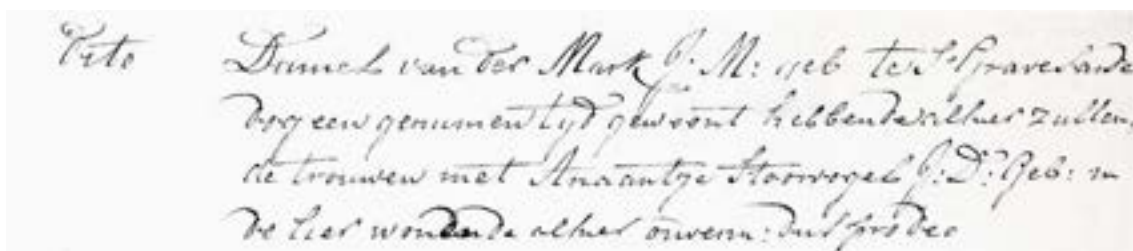 Dito Daniel van der Mark J: M: geb te 's Gravesande
dog een geruimen tyd gewoont hebbende alhier zullen,
de trouwen met Ariaantge Stoorvogel J: Dr: Geb: in
de lier wonende alhier onverm: dus pro deo